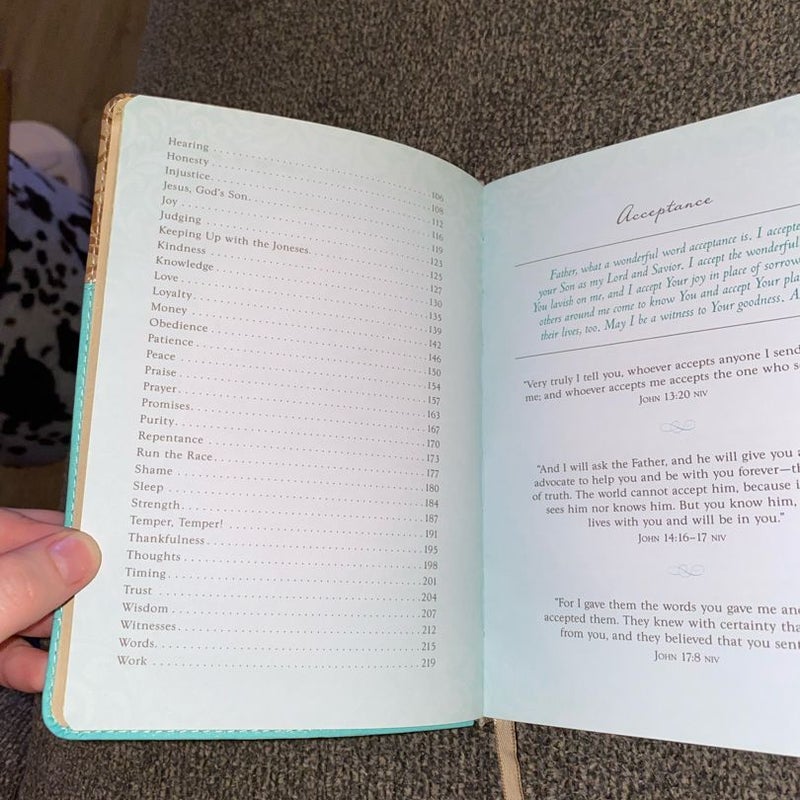 Hearing 106
Honesty 108
Injustice 112
Jesus, God's Son 116
Joy 119
Judging 123
Keeping Up with the Joneses 125
Kindness 127
Knowledge 130
Love 135
Loyalty 139
Money 142
Obedience 146
Patience 150
Peace 154
Praise 157
Prayer 163
Promises 167
Purity 170
Repentance 173
Run the Race 177
Shame 180
Sleep 184
Strength 187
Temper, Temper! 191
Thankfulness 195
Thoughts 198
Timing 201
Trust 204
Wisdom 207
Witnesses 212
Words 215
Work 219
Acceptance
Father, what a wonderful word acceptance is. I accepte
your Son as my Lord and Savior. I accept the wonderful
You lavish on me, and I accept Your joy in place of sorrow
others around me come to know You and accept Your pla
their lives, too. May I be a witness to Your goodness. A
"Very truly I tell you, whoever accepts anyone I send
me; and whoever accepts me accepts the one who s
John 13:20 NIV
"And I will ask the Father, and he will give you a
advocate to help you and be with you forever—th
of truth. The world cannot accept him, because i
sees him nor knows him. But you know him,
lives with you and will be in you."
John 14:16–17 NIV
"For I gave them the words you gave me and
accepted them. They knew with certainty tha
from you, and they believed that you sent
John 17:8 NIV